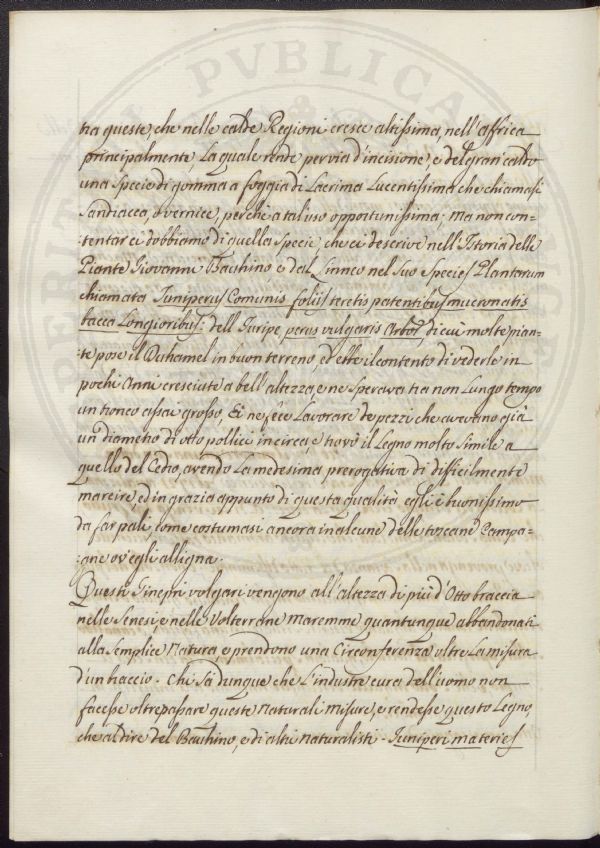 tra queste, che nelle calde Regioni cresce altissima, nell'Affrica
principalmente, La quale rende per via d'incisione, e del gran caldo
una Specie di gomma a foggia di Lacrima Lucentissima che chiamasi
Sandracca, o vernice, perchè a tal uso opportunissima; Ma non con-
tentar ci dobbiamo di quella Specie, che ci descrive nell'Istoria delle
Piante Giovanni Bauhino e dal Linneo nel Suo Species Plantarum
chiamata Juniperus Comunis foliis teretis patentibus mucronatis
bacca Longioribus: dell'Juripe perus vulgaris Arbor, di cui molte pian-
te pose il Duhamel in buon terreno, ed ebbe il contento di vederle in
pochi Anni cresciute a bell'altezza, e ne sperava tra non Lungo tempo
un tronco assai grosso, Ei ne fece Lavorare de pezzi che avevano già
un diametro di otto pollici incirca, e trovò il Legno molto simile a
quello del Cedro, avendo La medesima prerogativa di difficilmente
marcire, ed in grazia appunto di questa qualità egli è buonissimo
da far pali, come costumasi ancora in alcune delle toscane Campa-
gne ov'egli alligna.
Questi Ginepri volgari vengono all'altezza di più d'Otto braccia
nelle Senesi, e nelle Volterrane Maremme quantunque abbandonati
alla Semplice Natura, e prendono una Circonferenza oltre La misura
d'un braccio. Chi Sà dunque che L'industre cura dell'uomo non
facesse oltrepassare queste Naturali Misure, e rendesse questo Legno,
che al dire del Bauhino, e di altri Naturalisti - Juniperi materies
PVBLICA